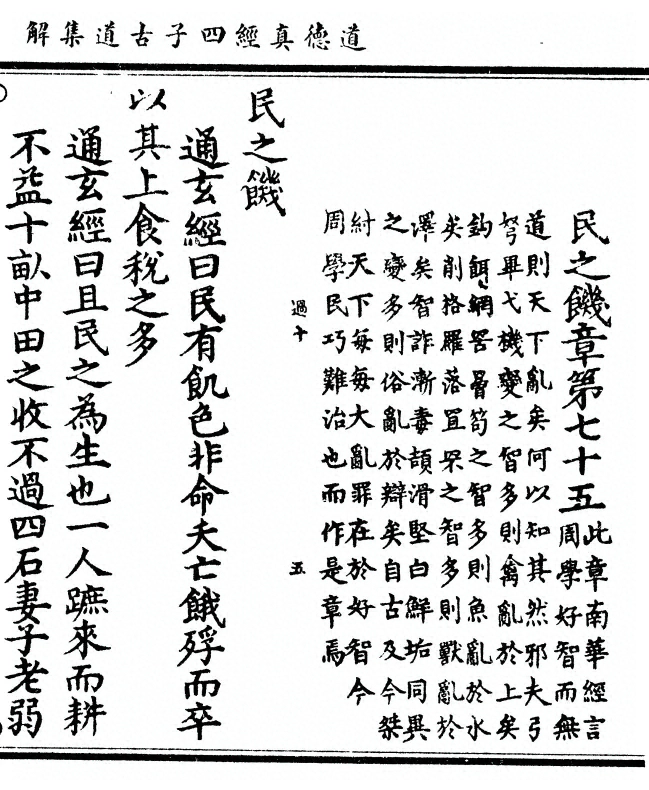 道德真經四子古道集解
民之饑章第七十五
此章南華經言
周學好智而無
道則天下亂矣何以知其然邪夫弓
弩畢弋機變之智多則禽亂於上矣
鈎餌網罟罾笱之智多則魚亂於水
矣削格羅落罝罘之智多則獸亂於
澤矣智詐漸毒頡滑堅白鮮垢同異
之變多則俗亂於辯矣自古及今桀
紂天下每每大亂罪在於好智今
周學民巧難治也而作是章焉
過十 五
民之饑
通玄經曰民有飢色非命夭亡餓殍而卒
以其上食稅之多
通玄經曰且民之為生也一人蹠來而耕
不益十畝中田之收不過四石妻子老弱